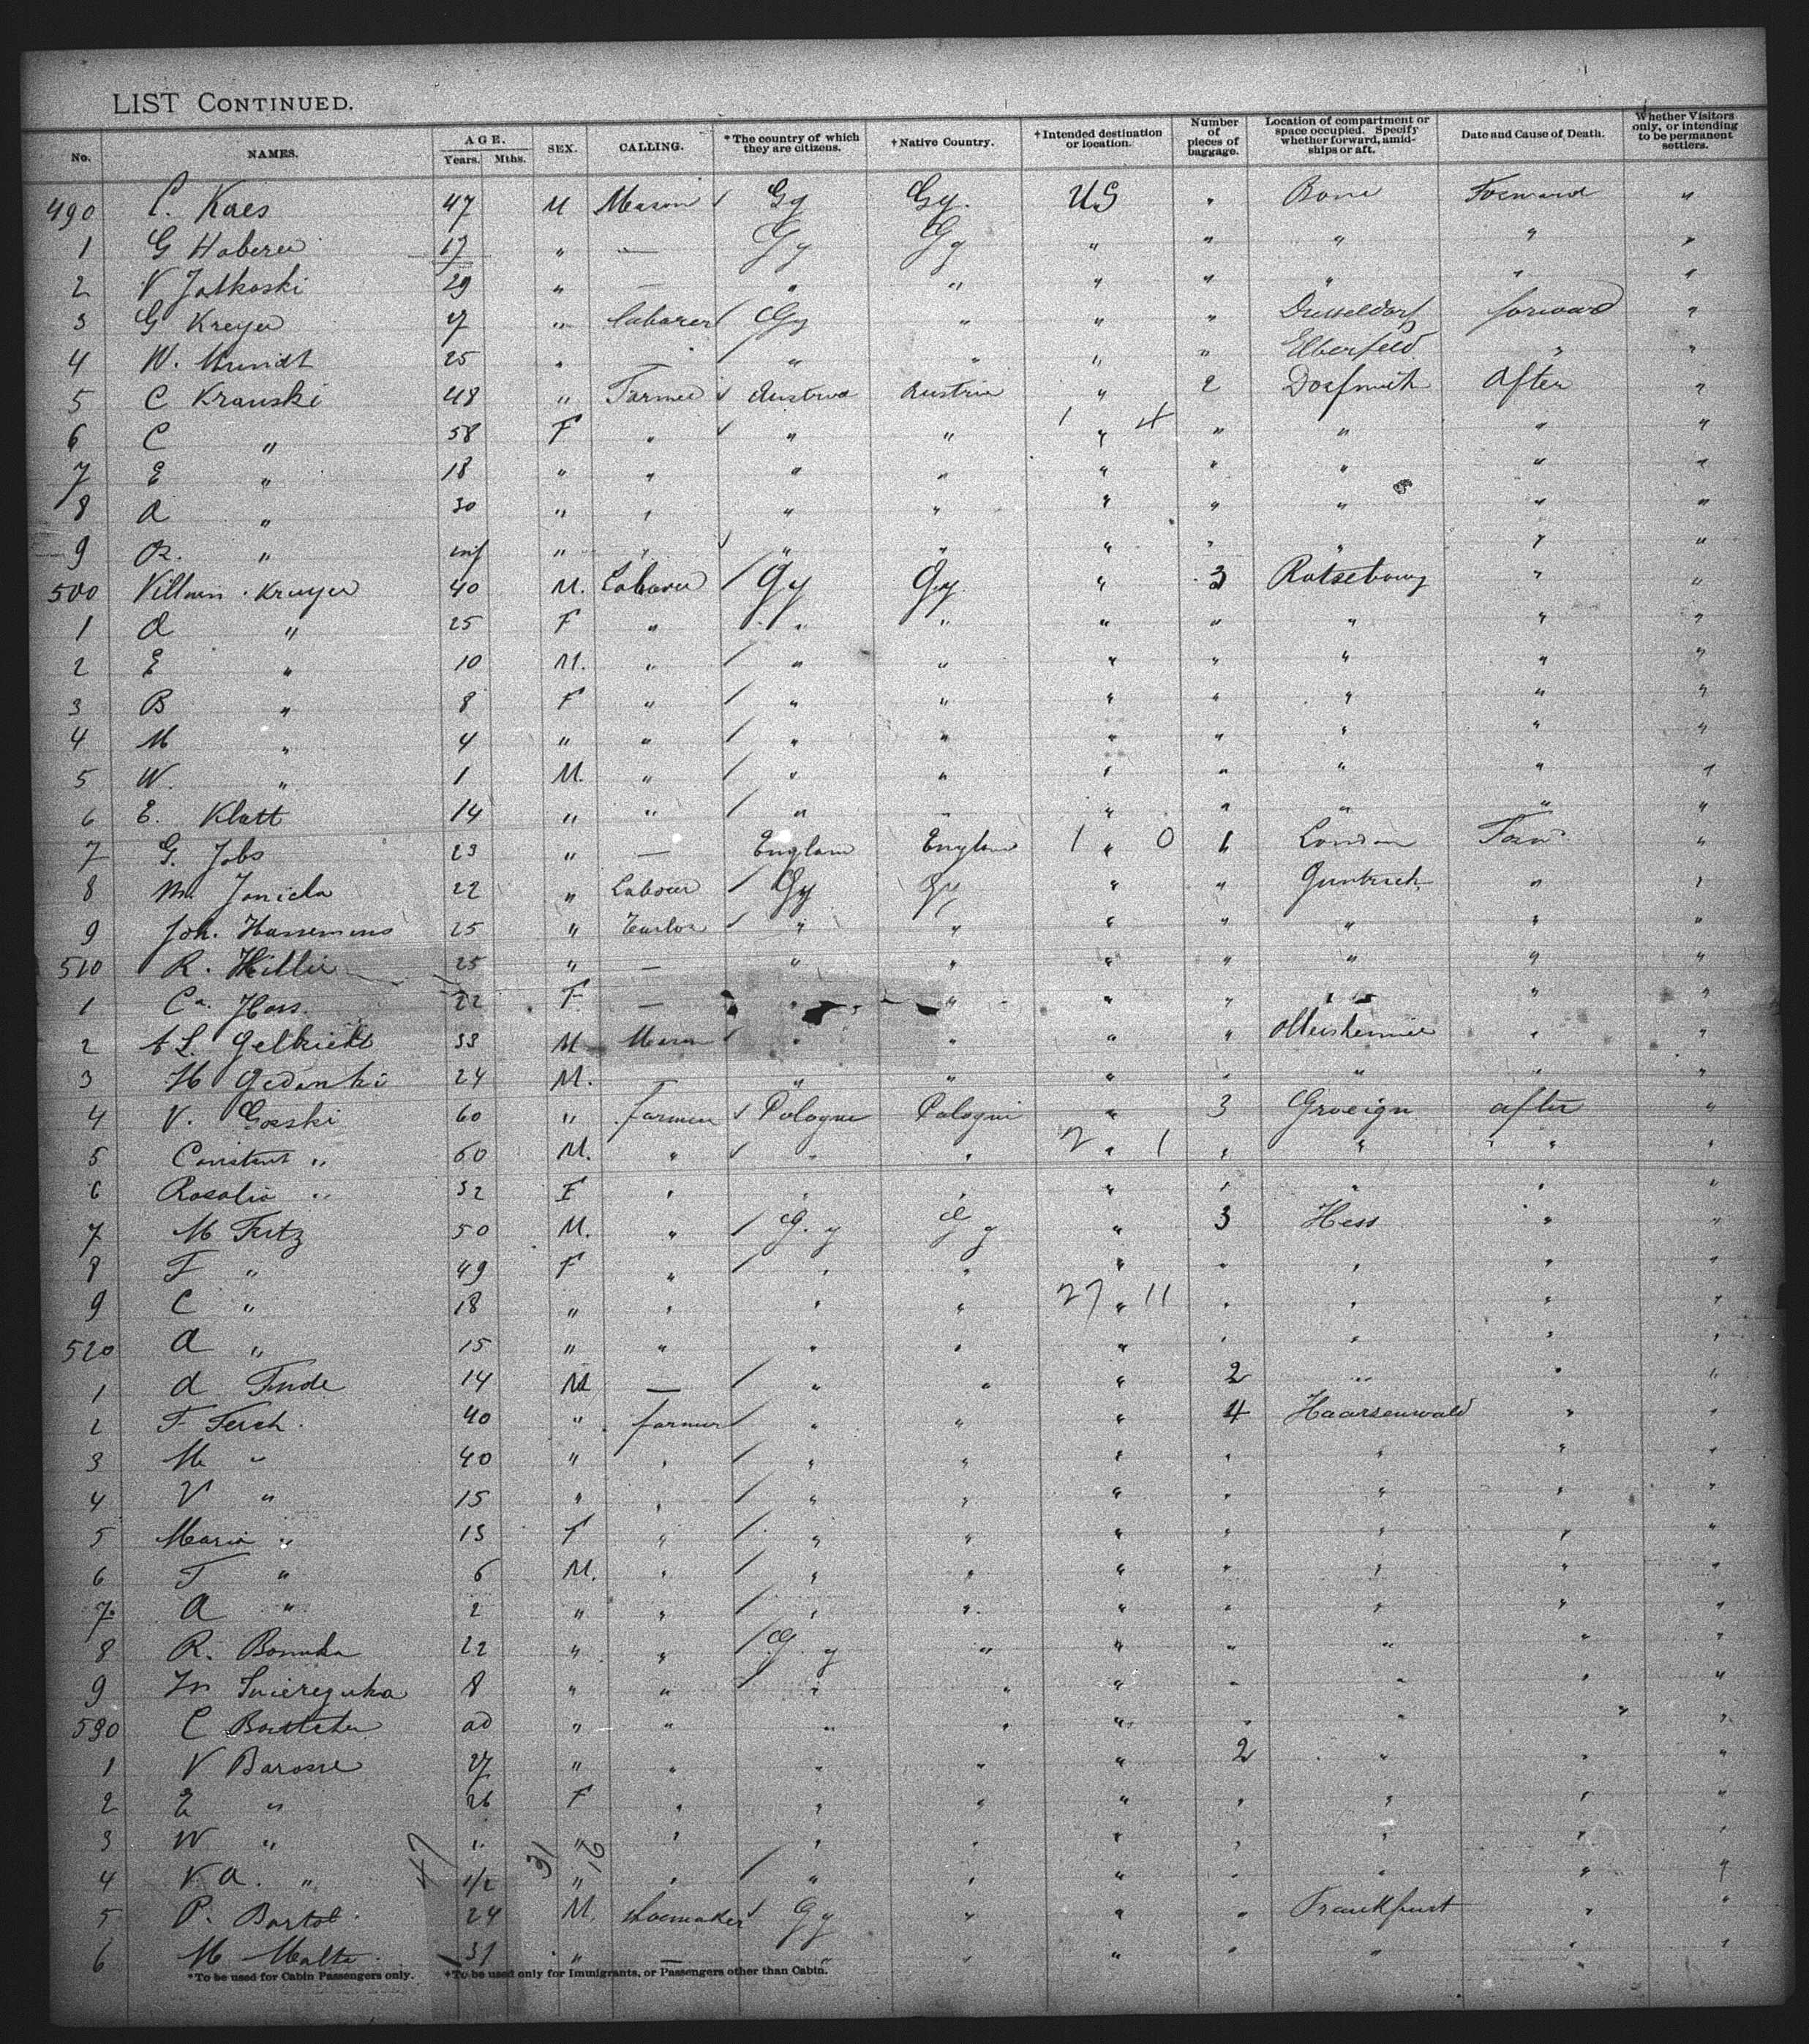 LIST CONTINUED.
No. NAMES. AGE. Years. Mths. SEX. CALLING. *The country of which they are citizens. †Native Country. †Intended destination or location. Number of pieces of baggage. Location of compartment or space occupied. Specify whether forward, amidships or aft. Date and Cause of Death. Whether Visitors only, or intending to be permanent settlers.
490 C. Kaes 47 M Mason ✓ Gy Gy. US " Bonn Forward "
1 G Haberer 17 " — Gy Gy " " " " "
2 V Jatkoski 29 " — " " " " " " "
3 G Kreyer 27 " Labarer / Gy " " " Dusseldorf forward "
4 W. Mundt 25 " — / " " " " Elberfeld " "
5 C Krauski 48 " Farmer ✓ Austria Austria " 2 After "
6 C " 58 F " ✓ " " 1 " 4 " " " "
7 E " 18 " " " " " " " " "
8 A " 30 " " " " " " " " "
9 R. " inf " " ✓ " " " " " " "
500 Kruger 40 M. Labarer / Gy Gy " 3 Ratzebourg " "
1 A " 25 F " / " " " " " " "
2 E " 10 M. " / " " " " " " "
3 B " 8 F " / " " " " " " "
4 M " 4 " " / " " " " " " "
5 W. " 1 M. " / " " " " " " "
6 E. Klatt 14 " " / " " " " " " "
7 G. Jobs 23 " — England England 1 " 0 1 London Forw "
8 M. Janicka 22 " Labour / Gy Gy " " " "
9 Joh. 25 " ✓ " " " " " " "
510 R. Hillie 25 " — " " " " " " "
1 Ca. Hass. 22 F — " " " " " " "
2 A L. Gelbricht 33 M Mason ✓ " " " " " "
3 H Gedanski 24 M. — " " " " " " "
4 V. Gosski 60 " farmer ✓ Pologne Pologne " 3 after "
5 Constant " 60 M. " ✓ " " 2 " 1 " " " "
6 Rosalie " 32 F " " " " " " " "
7 M Fritz 50 M. " / G.y G y " 3 Hess " "
8 F " 49 F " / " " " " " " "
9 C " 18 " " " " 27 " 11 " " " "
520 A " 15 " " " " " " " " "
1 A Finde 14 M — / " " " 2 " " "
2 F Ferch. 40 " farmer / " " " 4 Haarsenwald " "
3 M " 40 " " / " " " " " " "
4 V " 15 " " / " " " " " " "
5 Maria " 13 F " / " " " " " " "
6 F " 6 M. " / " " " " " " "
7 A " 2 " " / " " " " " " "
8 R. Bomka 22 " " / G.y " " " " " "
9 8 " " / " " " " " " "
530 C Bottcher ad " " " " " " " " "
1 V Barosse 27 " " " " " 2 " " "
2 E " 26 F " " " " " " " "
3 W " " " " " " " " " " "
4 V. A. " 1/2 " " / " " " " " " "
5 P. Bartol 24 M. shoemaker ✓ Gy " " " Frankfurt " "
6 M Malta 31 " — " " " " " " "
47 31 16
*To be used for Cabin Passengers only. †To be used only for Immigrants, or Passengers other than Cabin.